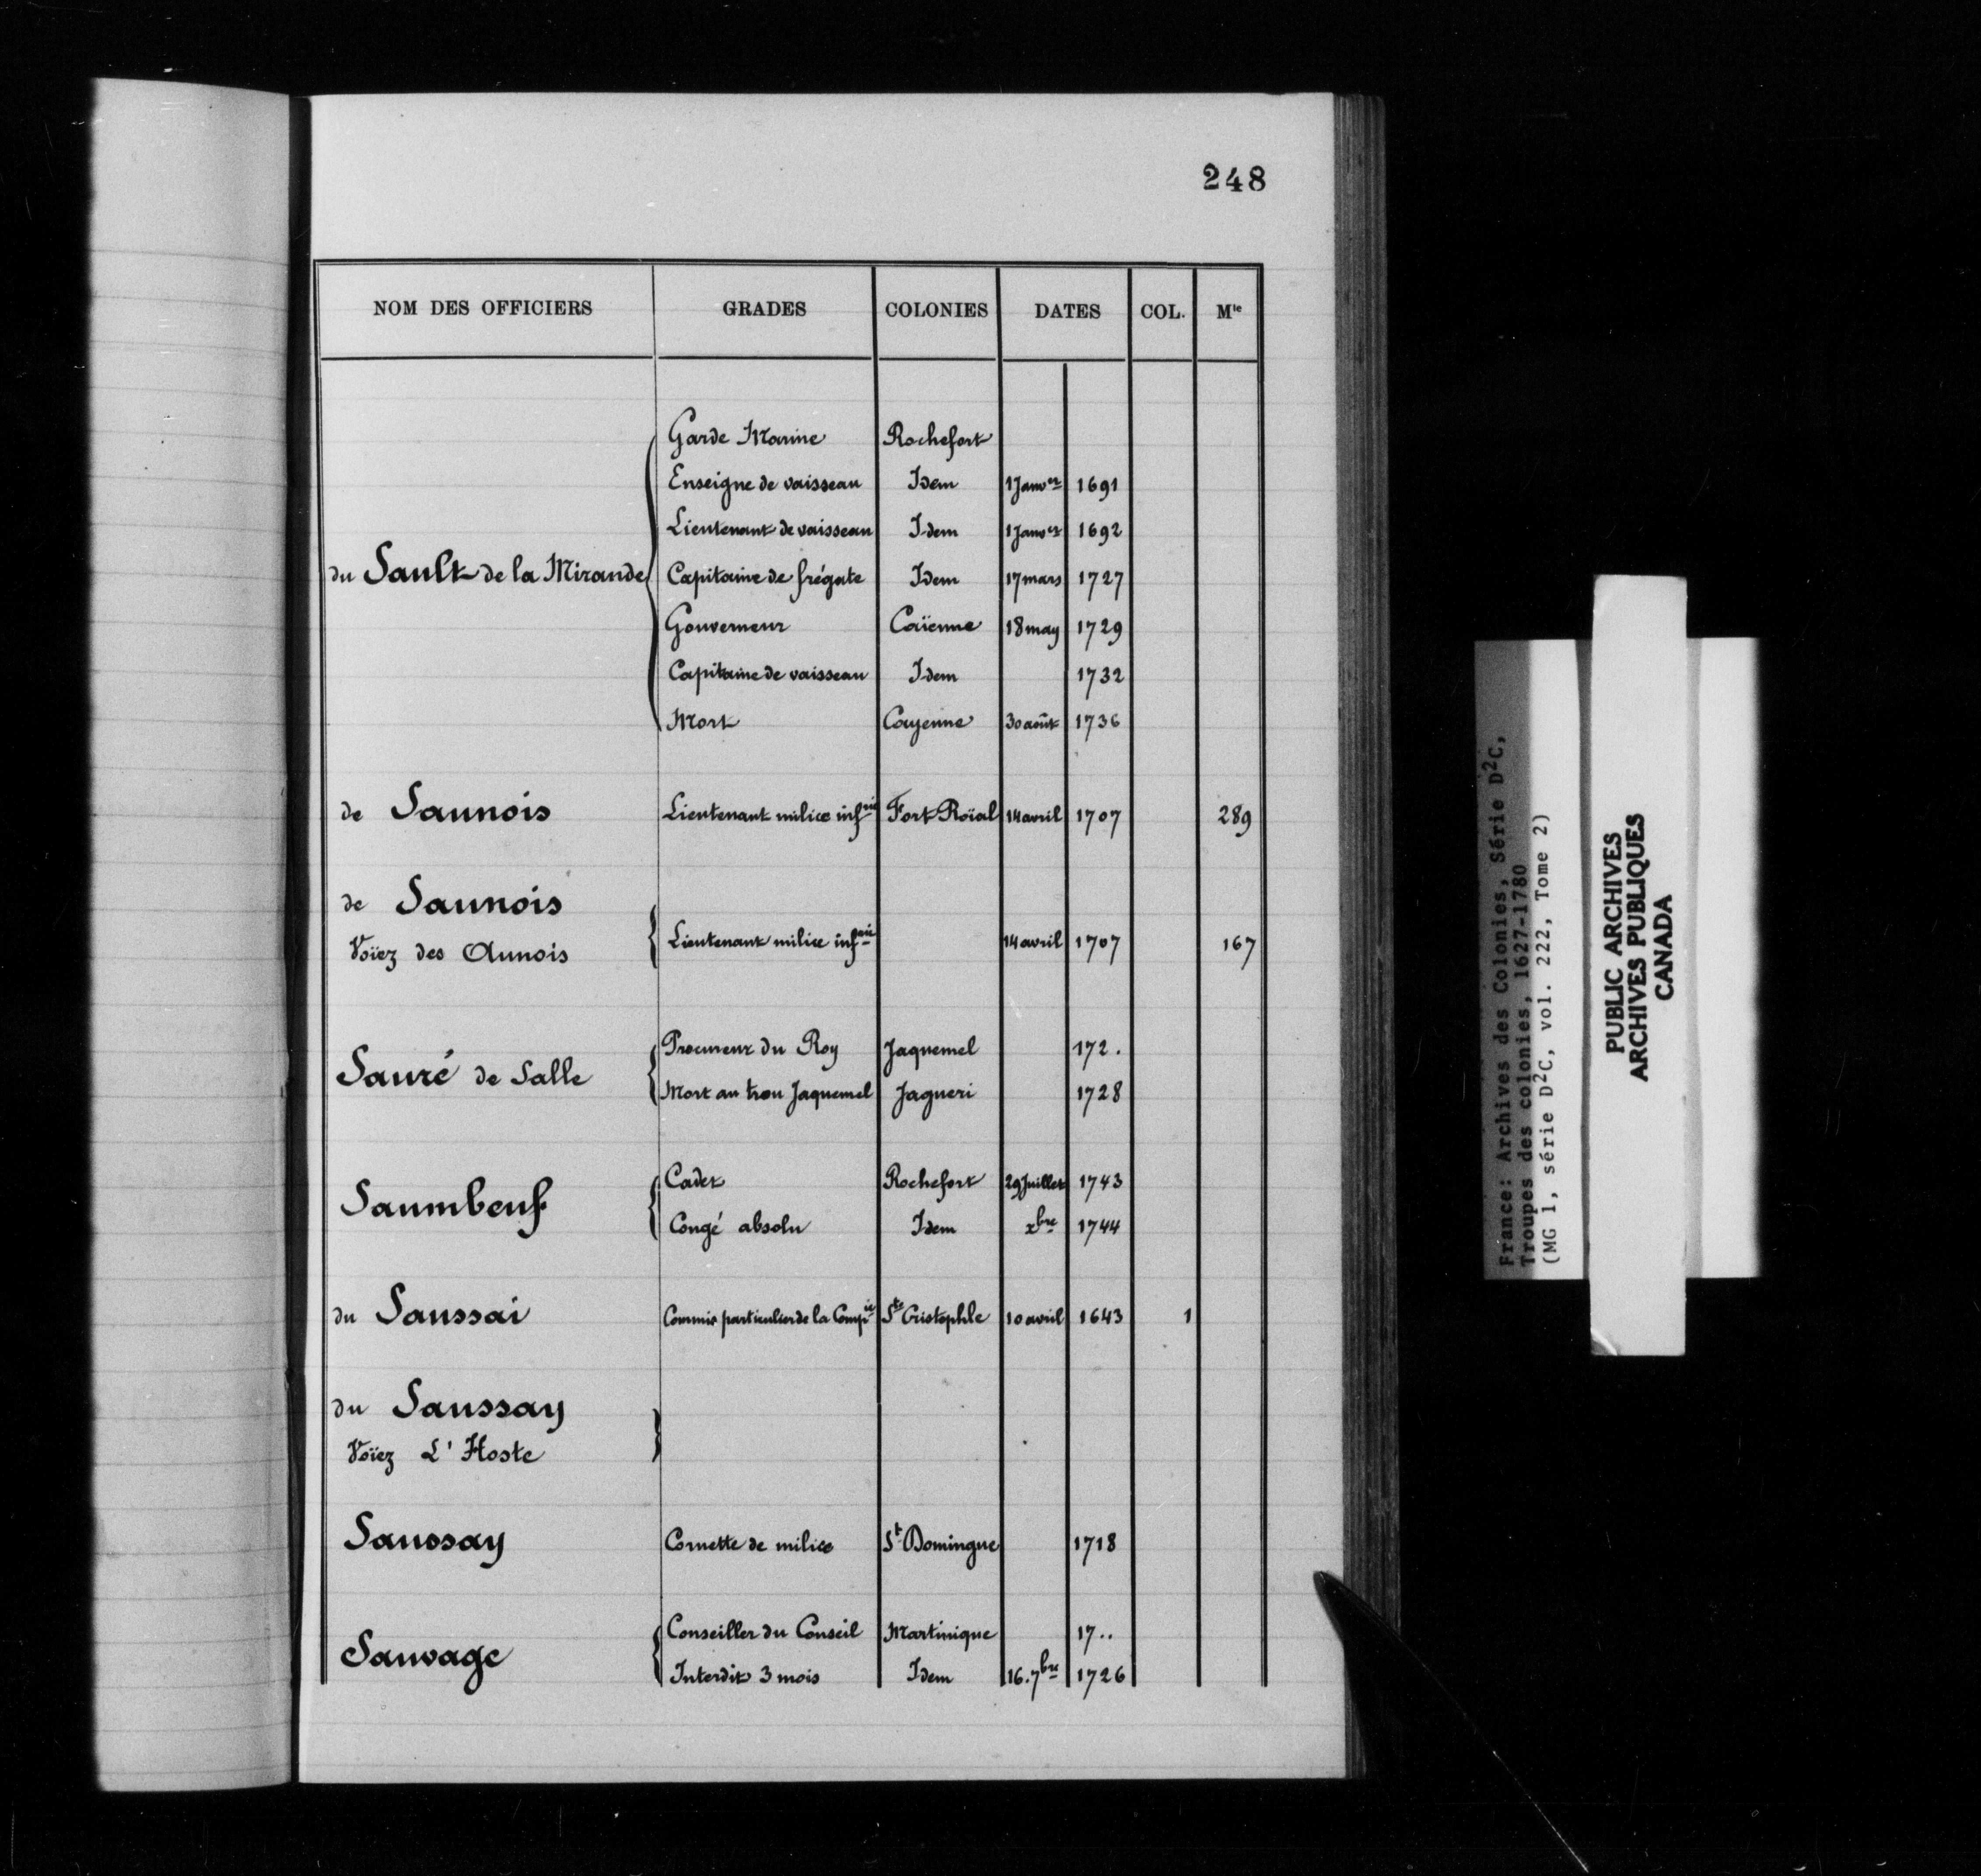 248
NOM DES OFFICIERS GRADES COLONIES DATES COL. Mle
Garde Marine Rochefort
Enseigne de vaisseau Idem 1 Janver 1691
Lieutenant de vaisseau Idem 1 Janver 1692
du Sault de la Mirande Capitaine de frégate Idem 17 mars 1727
Gouverneur Caïenne 18 may 1729
Capitaine de vaisseau Idem 1732
Mort Cayenne 30 août 1736
de Saunois Lieutenant milice infrie Fort Roïal 14 avril 1707 289
de Saunois
Voïez des Aunois Lieutenant milice infrie 14 avril 1707 167
Procureur du Roy Jaquemel 172.
Sauré de Salle
Mort au trou Jaquemel Jaqueri 1728
Cadet Rochefort 29 Juillet 1743
Saumbeuf
Congé absolu Idem xbre 1744
du Saussai Commis particulier de la Compie Ste Cristophle 10 avril 1643 1
du Saussay
Voïez L'Hoste
Saussay Cornette de milice St Domingue 1718
Conseiller du Conseil Martinique 17..
Sauvage
Interdit 3 mois Idem 16. 7bre 1726
France: Archives des Colonies, Série D2C,
Troupes des colonies, 1627-1780
(MG 1, série D2C, vol. 222, Tome 2)
PUBLIC ARCHIVES
ARCHIVES PUBLIQUES
CANADA